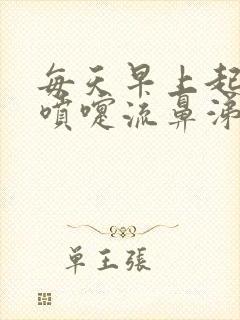 每天早上起
噴嚏流鼻涕
单王張